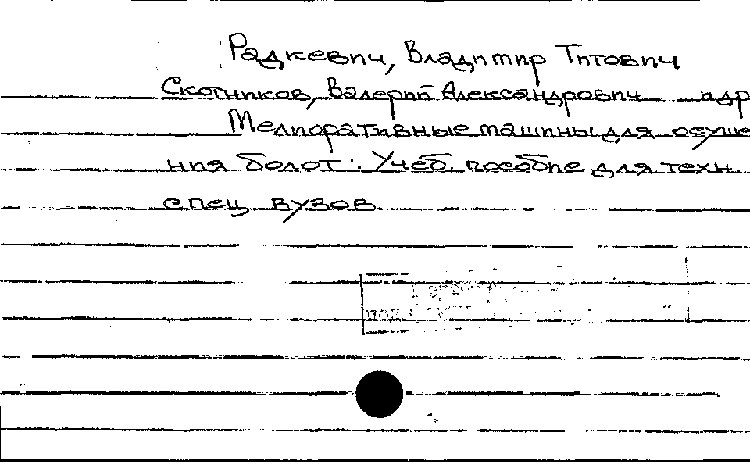 Радкевич, Владимир Титович
Скотников, Валерий Александрович и др
Мелиоративные машины для осуше
ния болот: Учеб. пособие для техн.
спец. вузов